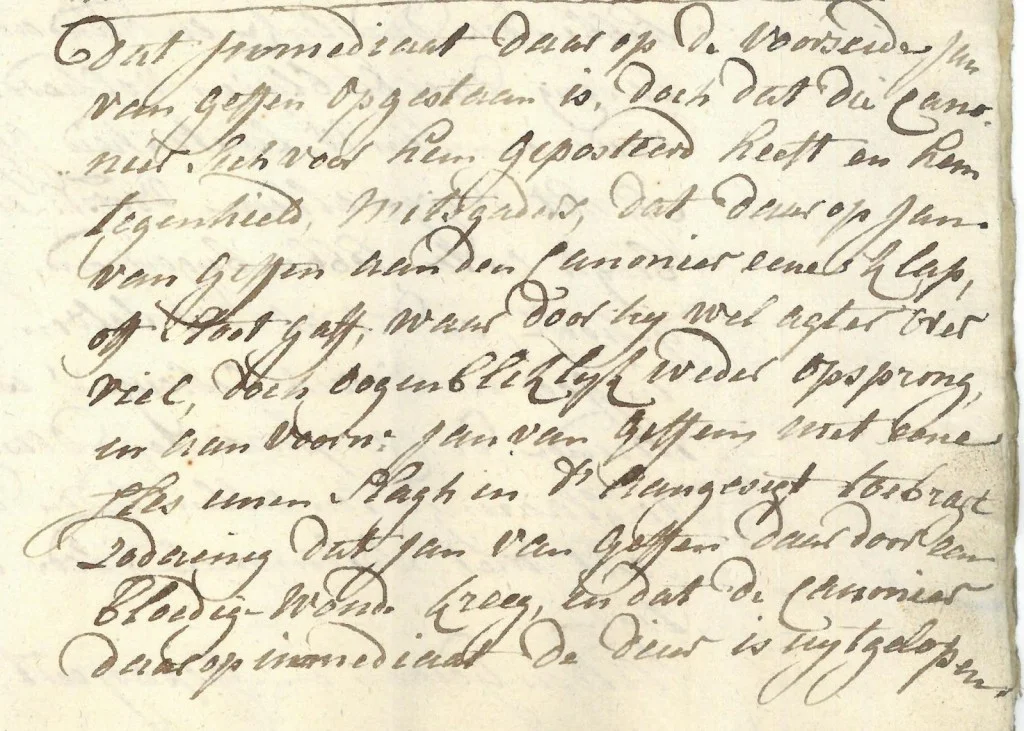 Dat immediaat daar op de voorseide Jan
van Geffen opgestaan is, doch dat die Cano-
nier sich voor hem geposteerd heeft en hem
tegenhield, mitsgaders, dat daar op Jan
van Geffen aan den Canonier eene klap,
off stoot gaff, waar door hy wel agter over
viel, doch oogenbliklyk weder opsprong,
en aan voorn: Jan van Geffen met eene
fles eenen slagh in 't aangesigt toebragt
zodanig dat Jan van Geffen daar door een
bloedige wonde kreeg, en dat de Canonier
daar op immediaat de deur is uytgelopen